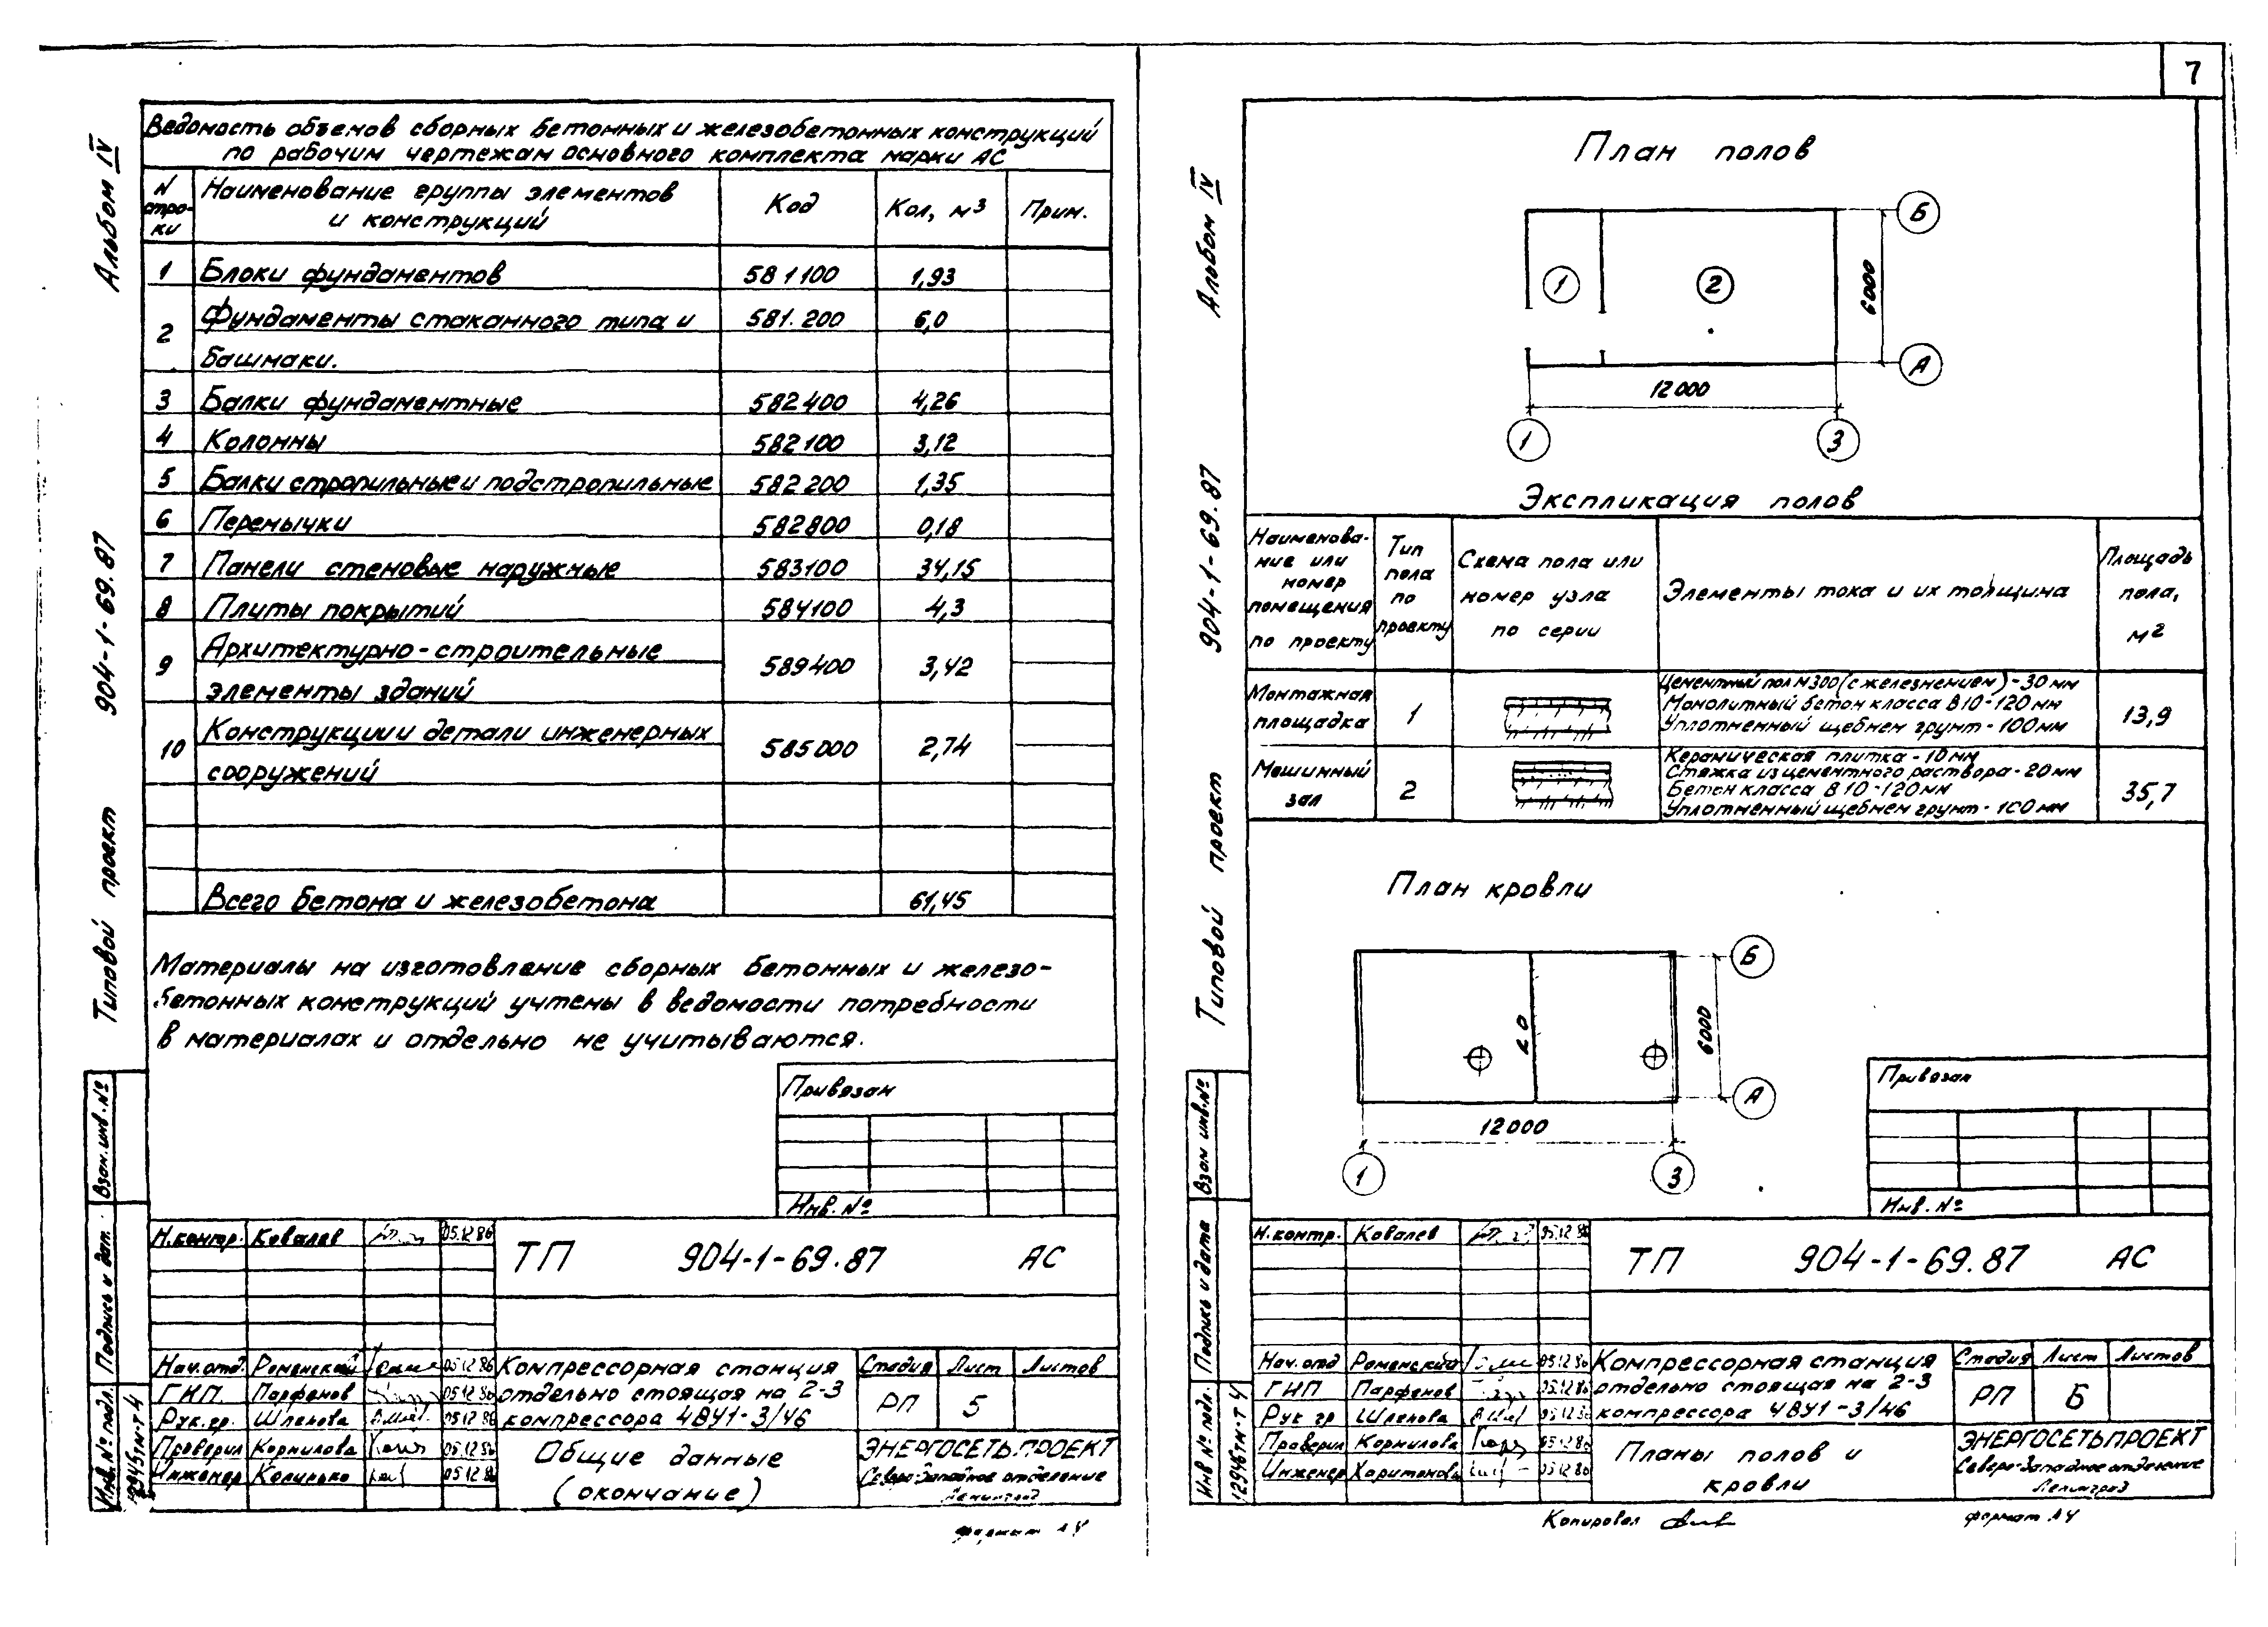 7
Альбом IV
Типовой проект 904-1-69.87
Ведомость объемов сборных бетонных и железобетонных конструкций
по рабочим чертежам основного комплекта марки АС
N стро-ки | Наименование группы элементов и конструкций | Код | Кол, м³ | Прим.
1 Блоки фундаментов 581100 1,93
2 Фундаменты стаканного типа и 581.200 6,0
башмаки.
3 Балки фундаментные 582400 4,26
4 Колонны 582100 3,12
5 Балки стропильные и подстропильные 582200 1,35
6 Перемычки 582800 0,18
7 Панели стеновые наружные 583100 34,15
8 Плиты покрытий 584100 4,3
9 Архитектурно-строительные
элементы зданий 589400 3,42
10 Конструкции и детали инженерных
сооружений 585000 2,74
Всего бетона и железобетона 61,45
Материалы на изготовление сборных бетонных и железо-
бетонных конструкций учтены в ведомости потребности
в материалах и отдельно не учитываются.
Привязан
Инв. №
Взам. инв. №
Подпись и дат.
Инв. № подл.
12945тм-т4
Н.контр. Ковалев 05.12.86
ТП 904-1-69.87 АС
Нач.отд. Роменский 05.12.86
ГИП. Парфенов 05.12.86
Рук.гр. Шленова 05.12.86
Проверил Корнилова 05.12.86
Инженер 05.12.86
Компрессорная станция
отдельно стоящая на 2-3
компрессора 4ВУ1-3/46
Стадия Лист Листов
РП 5
Общие данные
(окончание)
ЭНЕРГОСЕТЬПРОЕКТ
Северо-Западное отделение
Ленинград
формат А4
Альбом IV
Типовой проект 904-1-69.87
План полов
1 2
Б
А
6000
12000
1 3
Экспликация полов
Наименова-ние или номер помещения по проекту | Тип пола по проекту | Схема пола или номер узла по серии | Элементы тока и их толщина | Площадь пола, м²
Монтажная площадка 1
Цементный пол М300 (с железнением) - 30 мм
Монолитный бетон класса В10 - 120 мм
Уплотненный щебнем грунт - 100 мм
13,9
Машинный зал 2
Керамическая плитка - 10 мм
Стяжка из цементного раствора - 20 мм
Бетон класса В10 - 120 мм
Уплотненный щебнем грунт - 100 мм
35,7
План кровли
Б
А
6000
12000
1 3
Привязан
Инв. №
Взам инв. №
Подпись и дата
Инв № подл.
12945тм-т4
Н.контр. Ковалев 05.12.86
ТП 904-1-69.87 АС
Нач.отд Роменский 05.12.86
ГИП Парфенов 05.12.86
Рук гр Шленова 05.12.86
Проверил Корнилова 05.12.86
Инженер Харитонова 05.12.86
Компрессорная станция
отдельно стоящая на 2-3
компрессора 4ВУ1-3/46
Стадия Лист Листов
РП 6
Планы полов и
кровли
ЭНЕРГОСЕТЬПРОЕКТ
Северо-Западное отделение
Ленинград
Копировал
формат А4